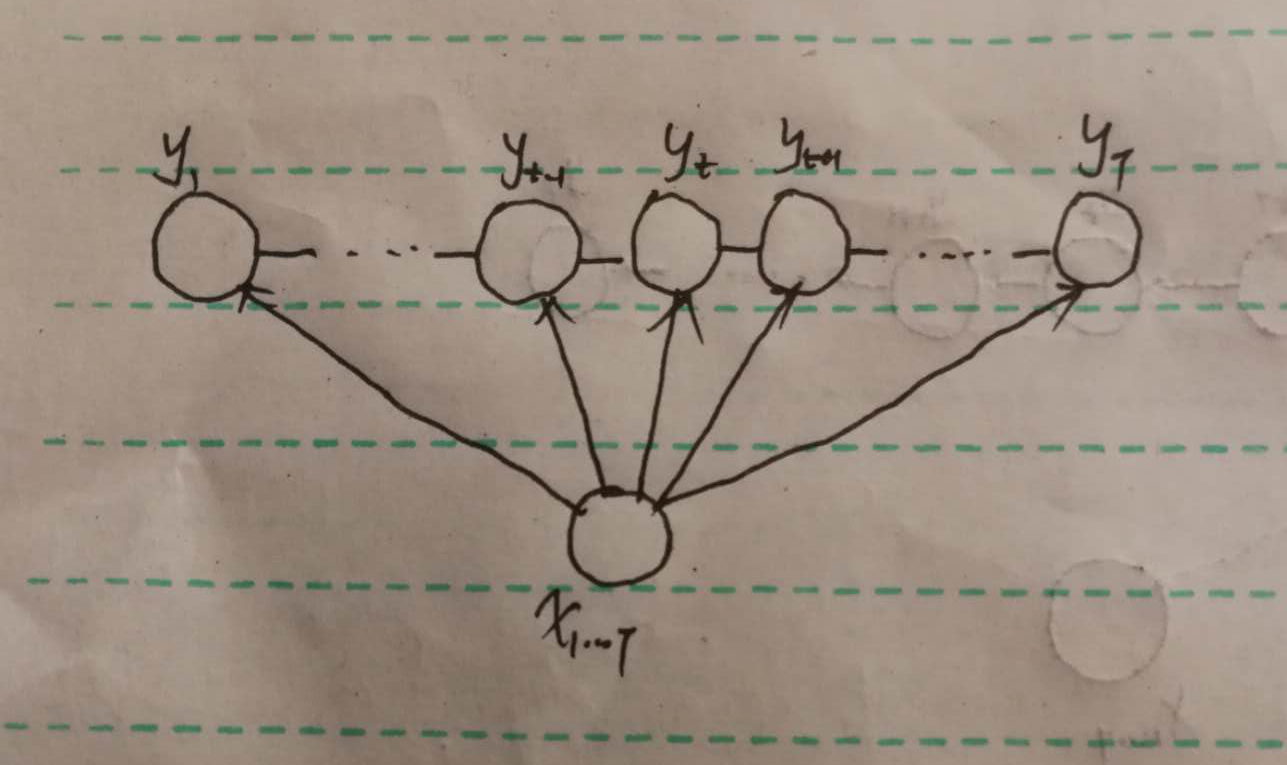 y₁ yₜ₋₁ yₜ yₜ₊₁ y_T
x₁...T